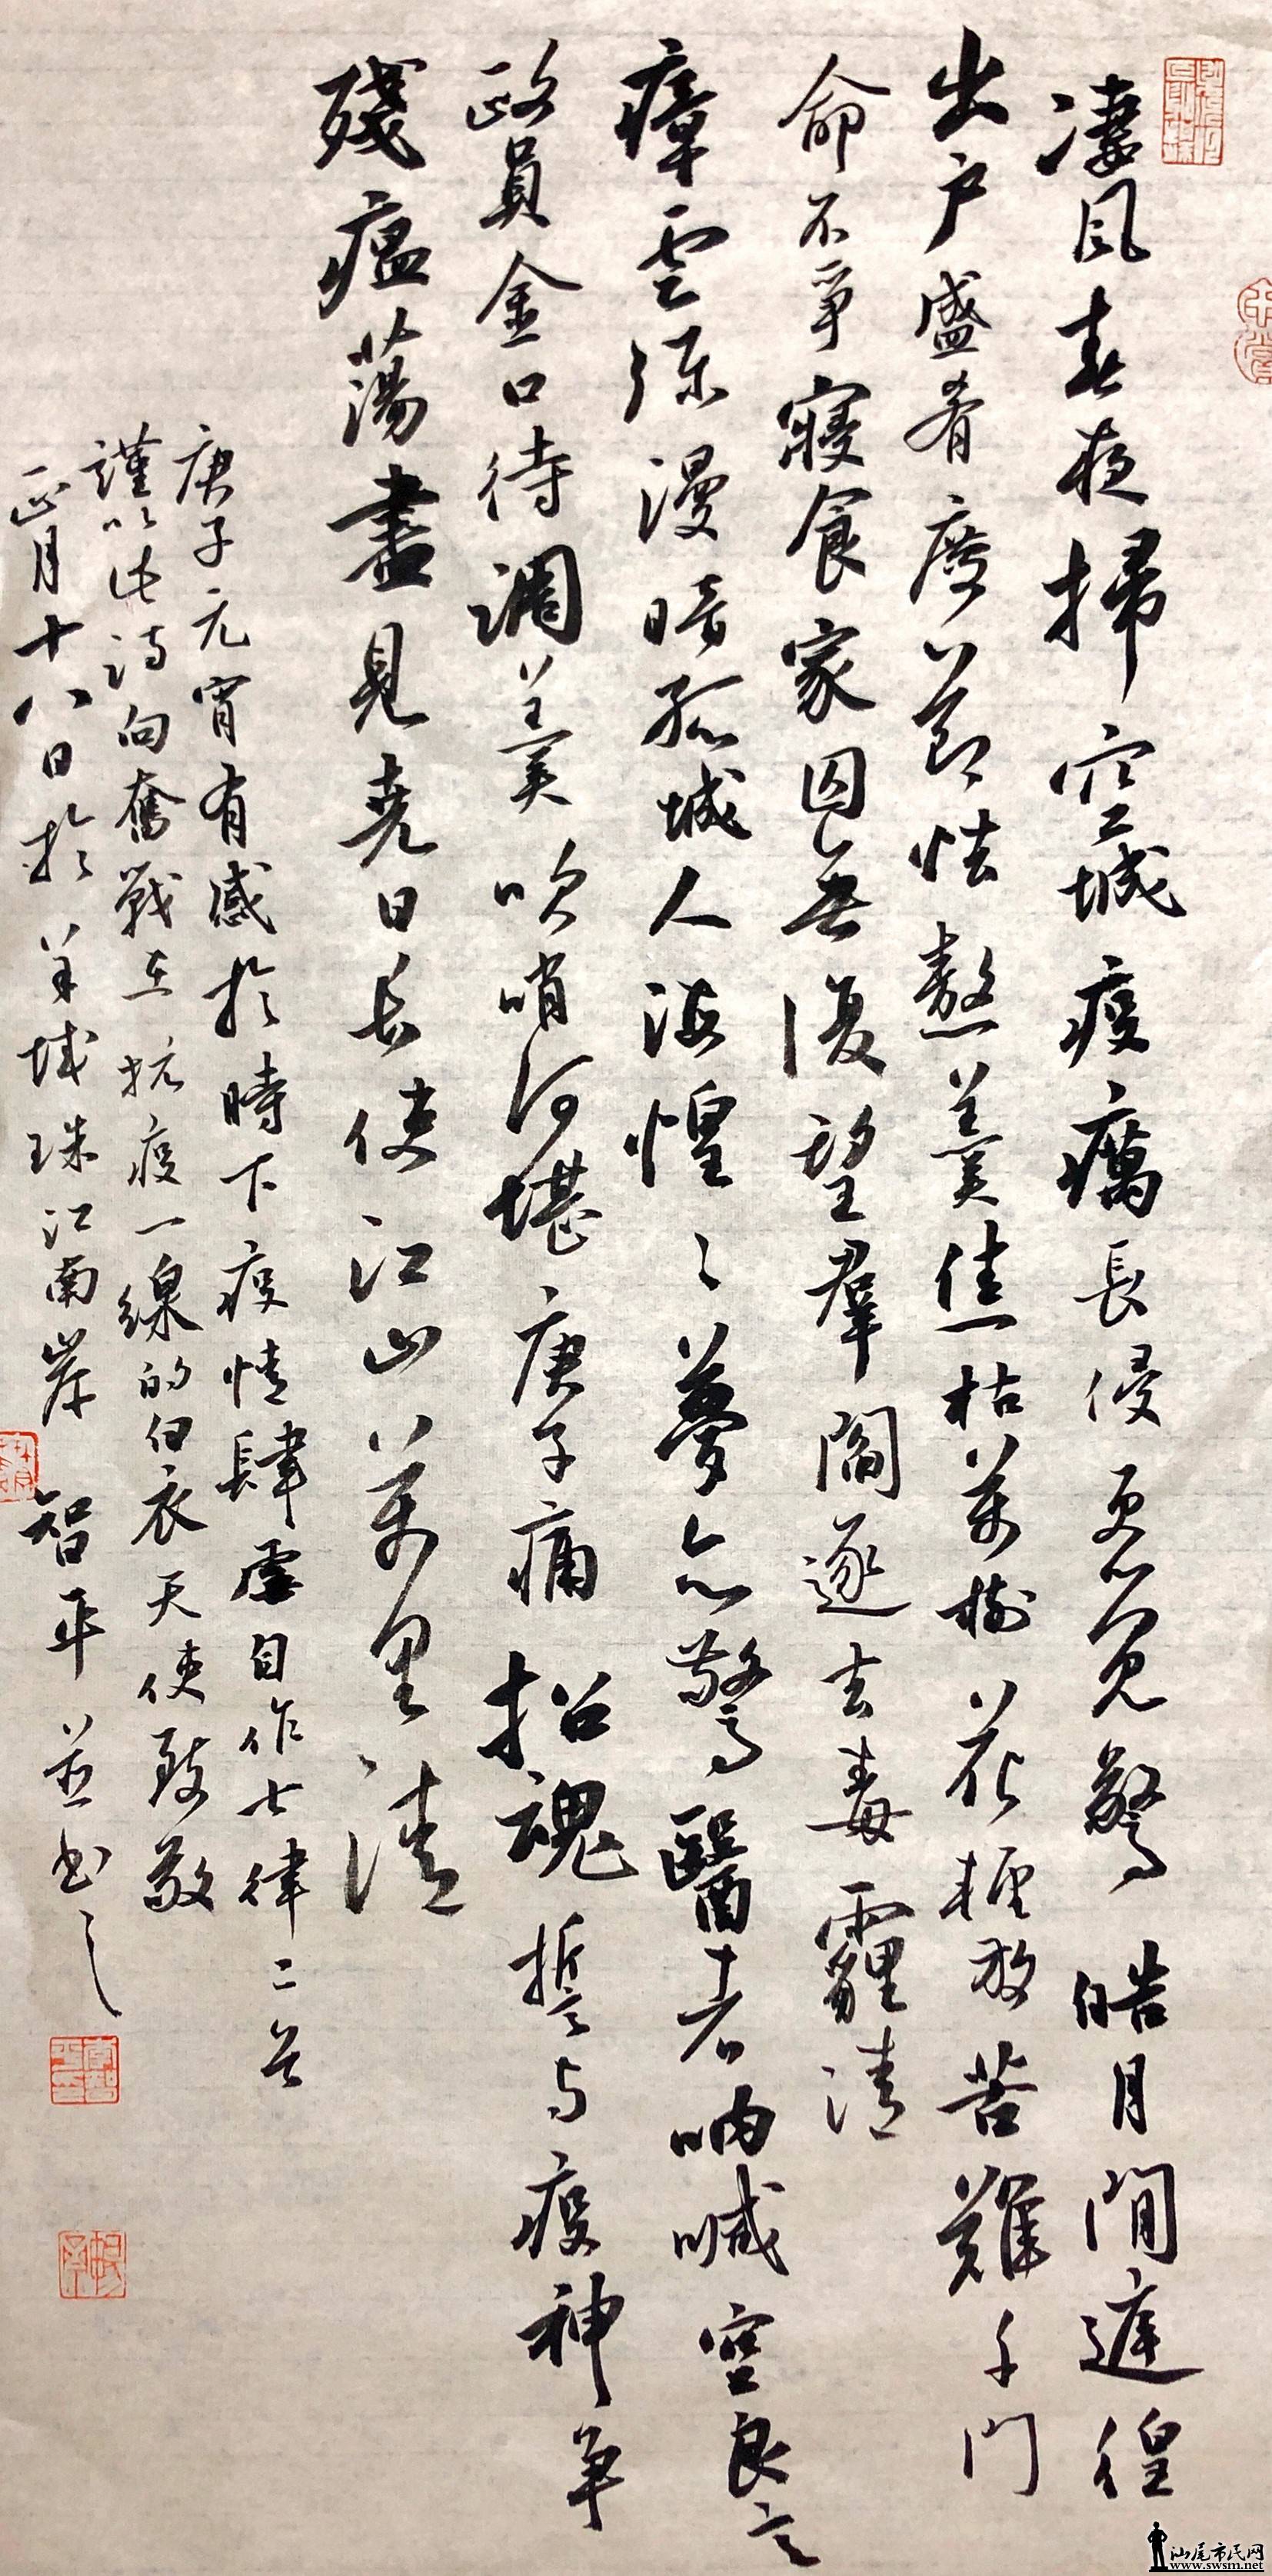 淒風春夜掃空城疫癘長侵更夐驚皓月閒遲徨
出戶盛肴廢節怯熬羹焦枯萬樹花輕放苦難千門
命不爭寢食家囚無復望群閻逐去毒霾清
瘴雲彌漫暗孤城人海惶〻夢亦驚醫者吶喊空良言
政員金口待調羹吹哨何堪庚子痛招魂誓與疫神爭
殘瘟蕩盡見堯日長使江山萬里清
庚子元宵有感於時下疫情肆虐自作七律二首
謹以此詩向奮戰在抗疫一線的白衣天使致敬
正月十八日於羊城珠江南岸 智平並書之
汕尾市民网
www.swsm.net